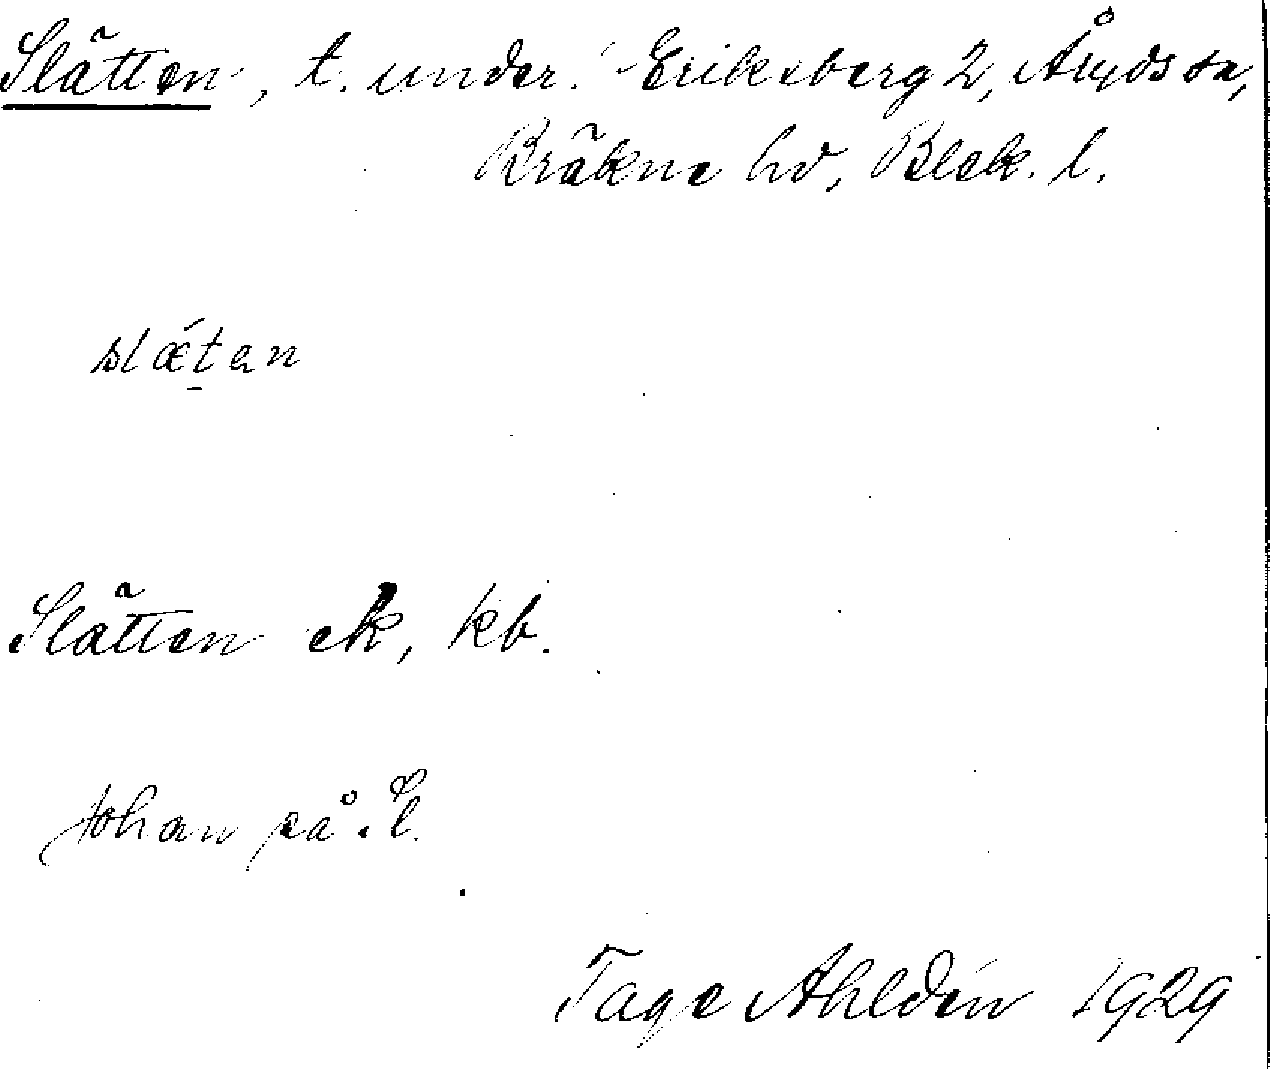 Slätten, t. under Eriksberg 2, Åryds sn,
Bräkne hd, Blek. l.
slǽtan
Slätten ek, kb.
Johan på Sl.
Tage Ahldén 1929